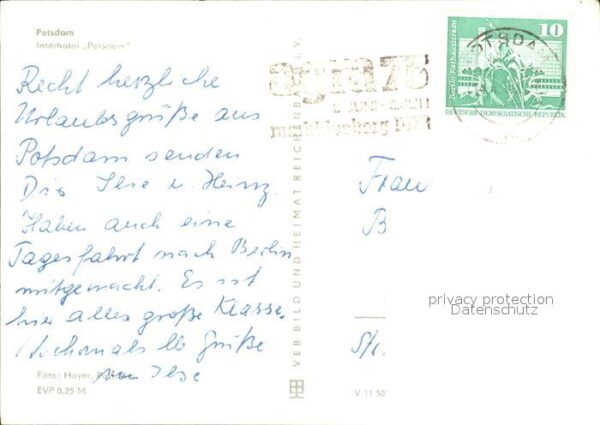 Potsdam
Interhotel „Potsdam"
Recht herzliche
Urlaubsgrüße aus
Potsdam senden
Dir Ilse u. Heinz.
Haben auch eine
Tagesfahrt nach Berlin
mitgemacht. Es ist
hier alles große Klasse.
Nochmals lb Grüße
Ilse
Foto: Hoyer,
EVP 0,25 M
VEB BILD UND HEIMAT REICHENBACH i. V.
V 11 50
agra 75
markkleeberg DDR
POTSDAM
10
DEUTSCHE DEMOKRATISCHE REPUBLIK
Frau
B
Str.
privacy protection
Datenschutz